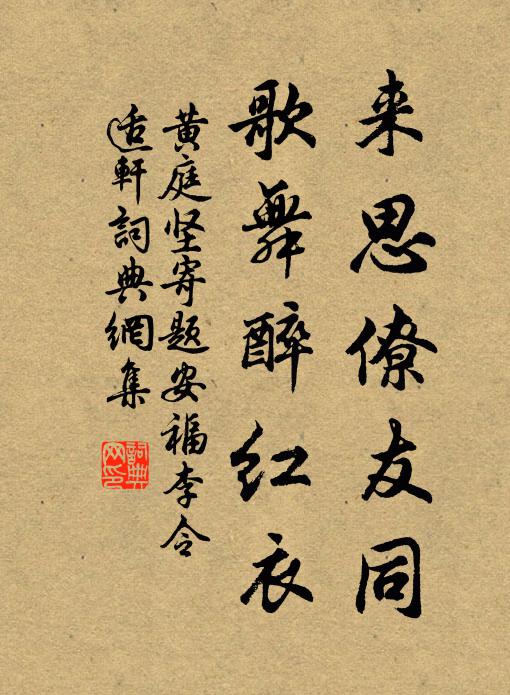 来思僚友同
歌舞醉红衣
黄庭坚寄题安福李令
适軒詞典網集
詞典网印